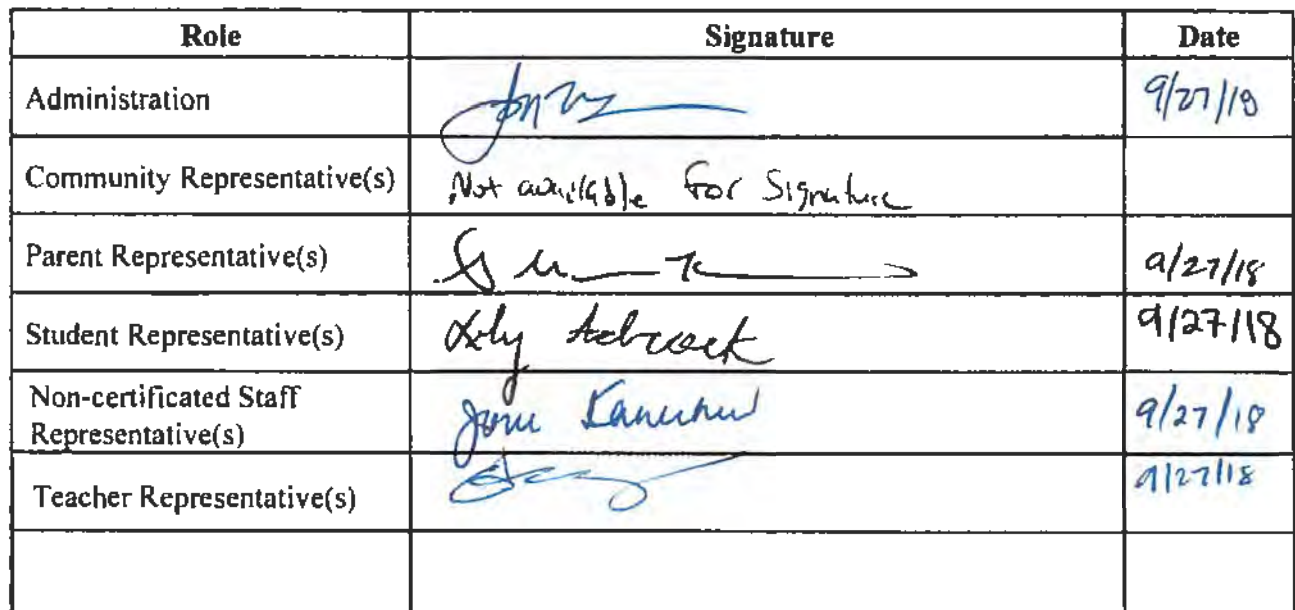 Role Signature Date
Administration 9/27/18
Community Representative(s) Not available for Signature
Parent Representative(s) 9/27/18
Student Representative(s) 9/27/18
Non-certificated Staff
Representative(s) 9/27/18
Teacher Representative(s) 9/27/18